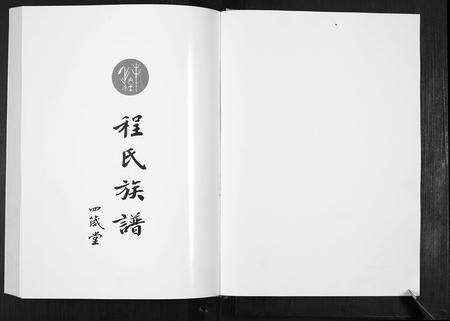 程氏族譜
四箴堂